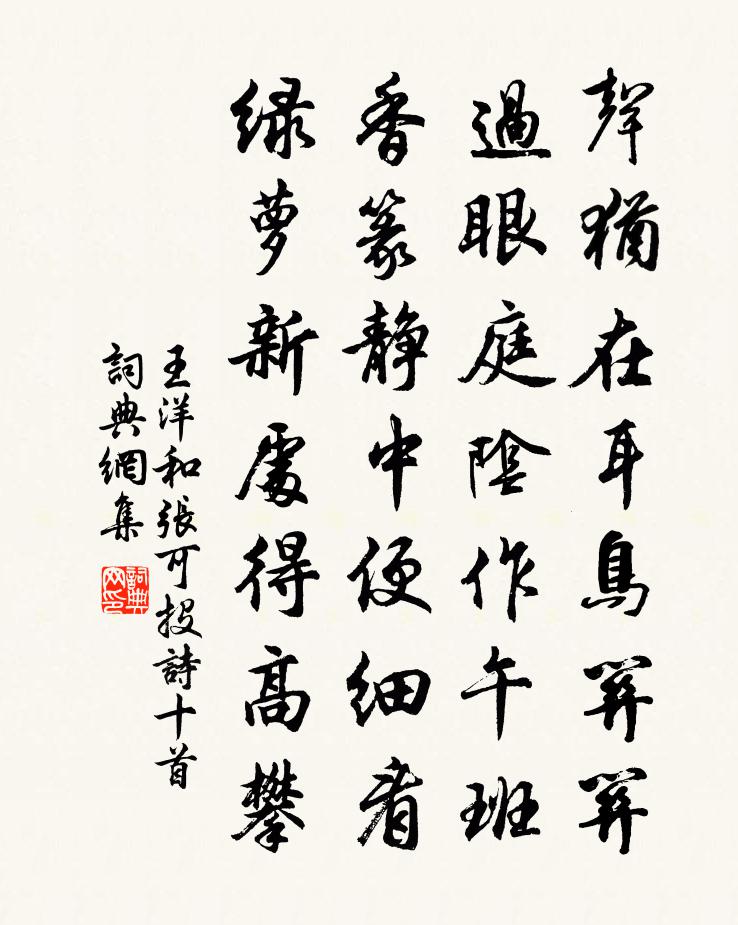 聲猶在耳鳥關關
過眼庭陰作午班
香篆靜中便細看
緑萝新處得高攀
王洋和張可投詩十首
詞典網集
詞典网印